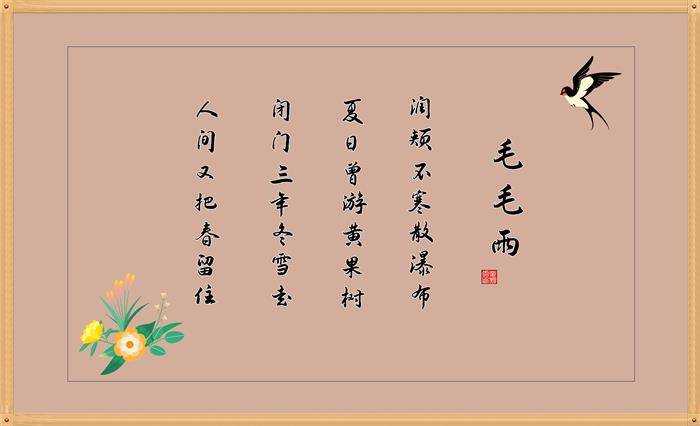 毛毛雨
润颊不寒散瀑布
夏日曾游黄果树
闭门三年冬雪去
人间又把春留住